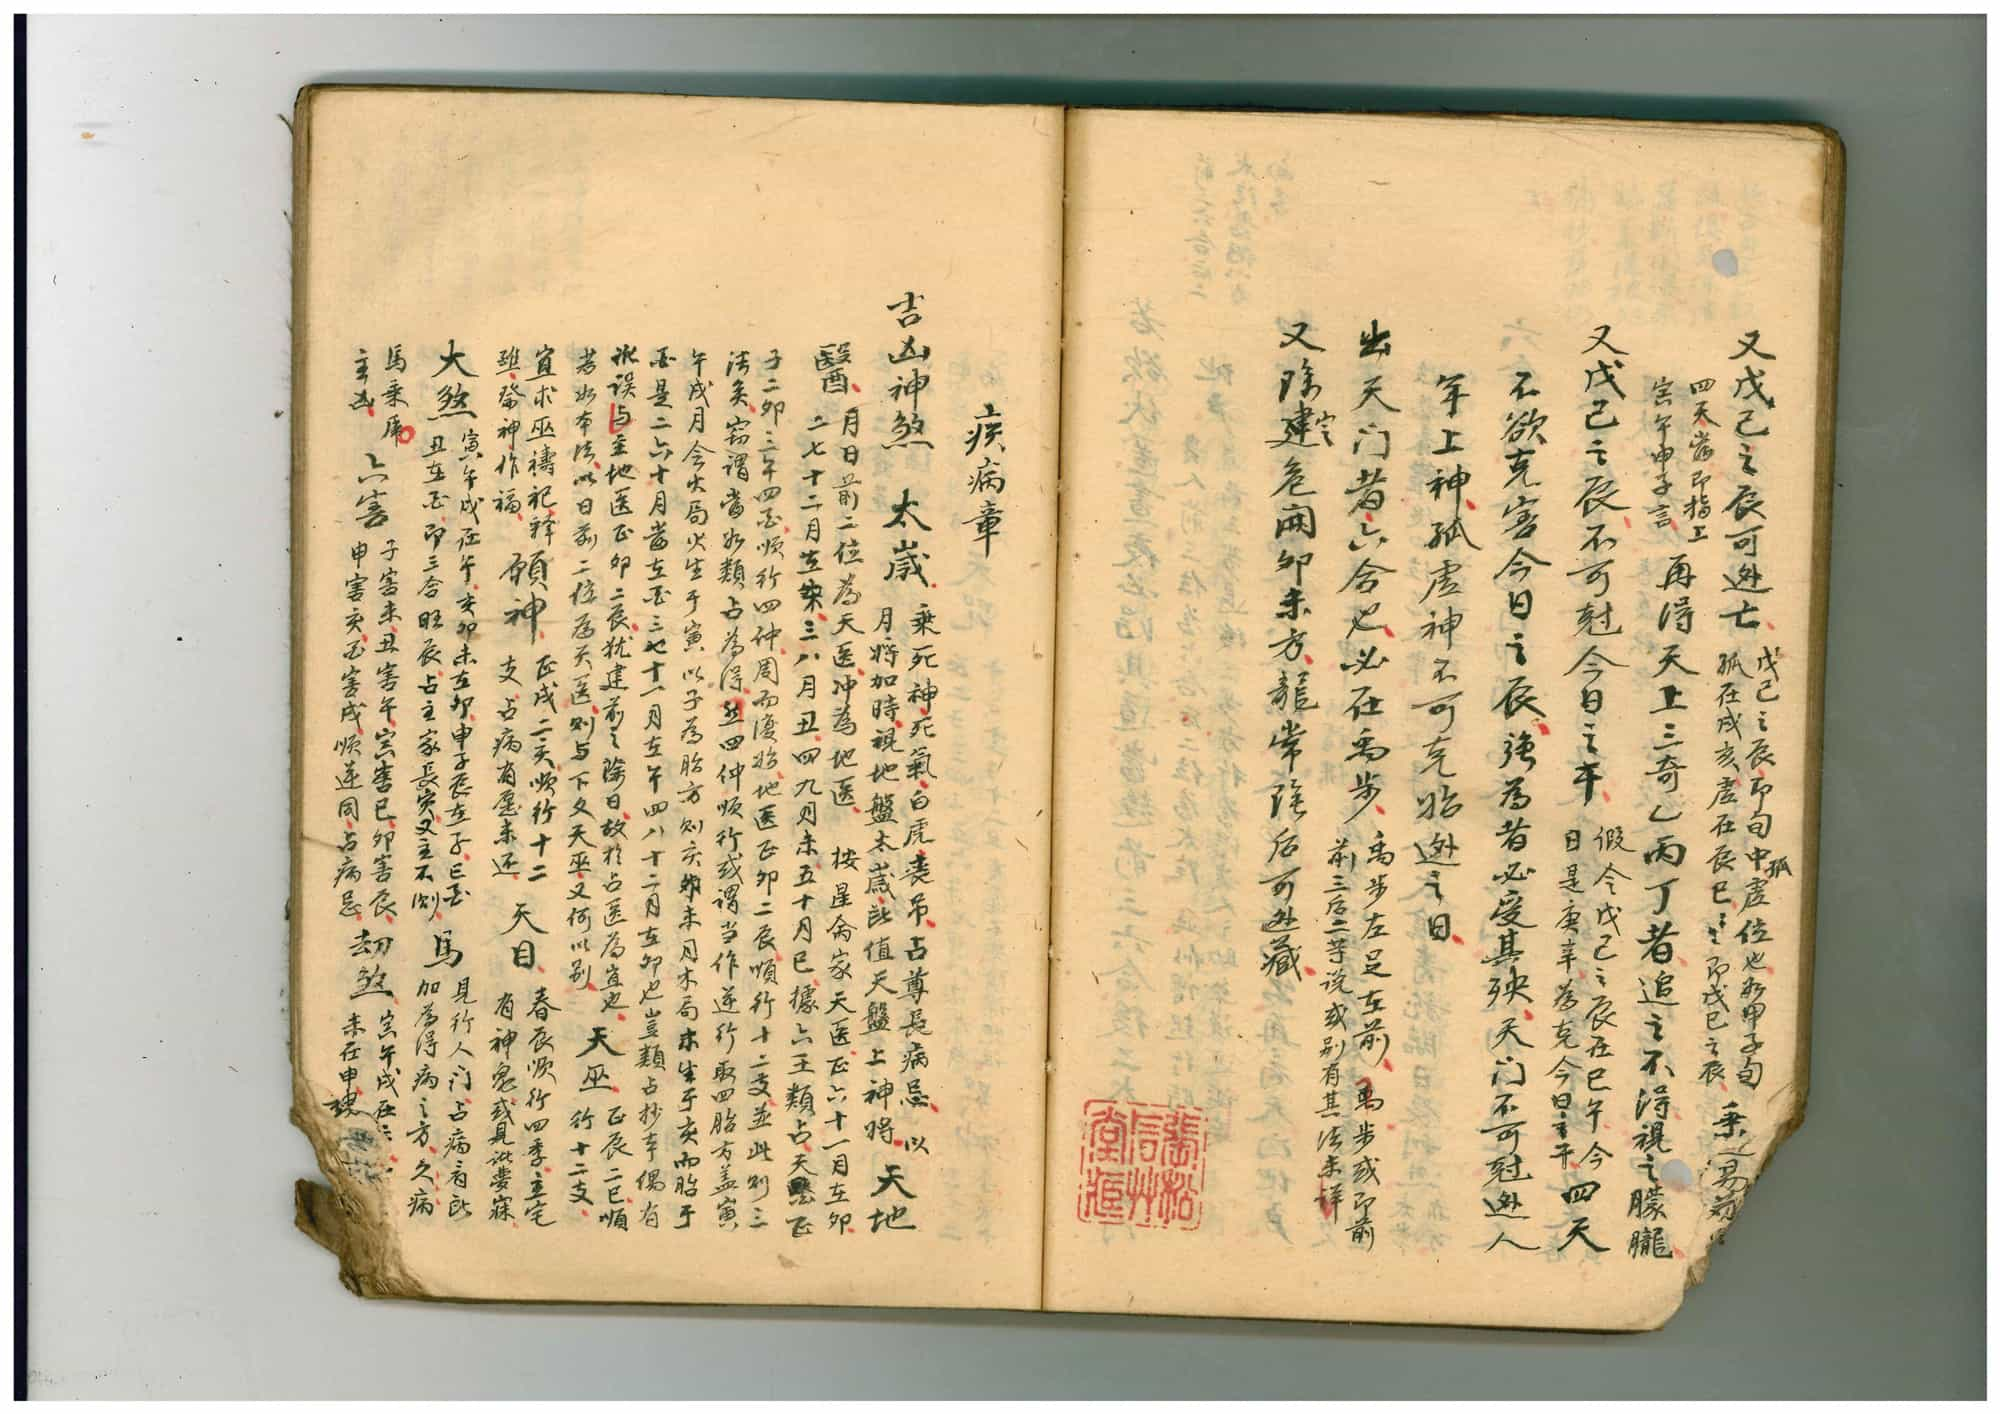 又戊己之辰可逊亡
戊己之辰即旬中孤虛位也如甲子旬
孤在戌亥虛在辰巳辰巳即戊己之辰
乘
四天當即指上
寅午申子言
再得天上三奇乙丙丁者追之不得視之朦朧
又戊己之辰不可尅今日之干
假令戊己之辰在巳午今
日是庚辛為克今日之干
四天
不欲克害今日之辰強為者必受其殃天门不可尅逊人
年上神孤虛神不可克始逊之日
出天门者六合也必在禹步
禹步左足在前禹步或即前
前三后二等说或别有其法未详
又除定建危開卯未方龍常陰后可逊藏
張松
信艸
堂
疾病章
吉凶神煞
太歲
乘死神死氣白虎喪吊占尊長病忌以
月將加時視地盤太歲此值天盤上神將
天地
醫
月日前二位為天医冲為地医
按星禽家天医正六十一月在卯
二七十二月在
三八月丑四九月未五十月巳據六壬類占天医正
子二卯三午四酉順行四仲周而復始地医正卯二辰順行十二支並此則三
法矣窃謂當如類占為得然四仲順行或謂当作逆行取四胎方盖寅
午戌月令火局火生于寅以子為胎方则亥卯未月木局木生于亥而胎于
酉是二六十月當在酉三七十一月在午四八十二月在卯也豈類占抄本偶有
訛误与至地医正卯二辰犹建前之除日故於占医為宜也
者如本法以日前二位為天医则与下文天巫又何以别
天巫
正辰二巳順
行十二支
宜求巫禱祀釋
雖發神作福
願神
正戌二亥順行十二
支占病有愿未还
天目
春辰順行四季主宅
有神鬼或見此夢寐
大煞
寅午戌在午亥卯未在卯申子辰在子巳酉
丑在酉即三合旺辰占主家長灾又主不测
馬
見行人门占病有此
加為得病之方久病
馬乘虎
主凶
六害
子害未丑害午寅害巳卯害辰
申害亥酉害戌順逆同占病忌
劫煞
寅午戌在
未在申